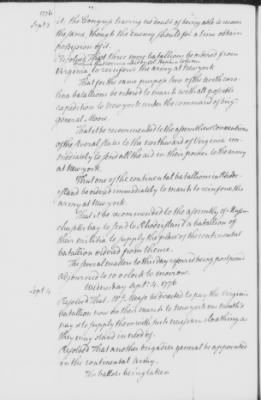 1776
Sept. 3
it, the Congress having no doubt of being able to recover
the same though the enemy should for a time obtain
possession of it.
Resolved That three more battalions be ordered from
Virginia to reinforce the army at New York
That for the same purpose two of the North caro
lina battalions be ordered to march with all possible
expedition to New york under the command of brigr
general Moore.
That it be recommended to the assemblies & conventions
of the several states to the northward of Virginia im-
mediately to send all the aid in their power to the army
at New york.
That one of the continental battalions in Rhode
island be ordered immediately to march to reinforce the
army at New york
That it be recommended to the assembly of Massa
chusetts bay to send to Rhode island a battalion of
their militia to supply the place of the continental
battalion ordered from thence.
The several matters to this day referred being postponed
Adjourned to 10 o'clock to morrow.
Wednesday Septr. 4. 1776
Sept. 4
Resolved That Mr. Mease be directed to pay the Virginia
battalion now on their march to New york one month's
pay & to supply them with such necessary cloathing as
they may stand in need of.
Resolved That another brigadier general be appointed
in the continental army.
The ballots being taken